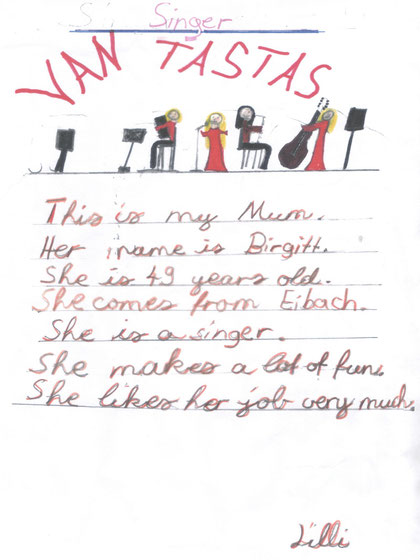 Singer
VAN TASTAS
This is my Mum.
Her name is Birgitt.
She is 49 years old.
She comes from Eibach.
She is a singer.
She makes a lot of fun.
She likes her job very much.
Lilli